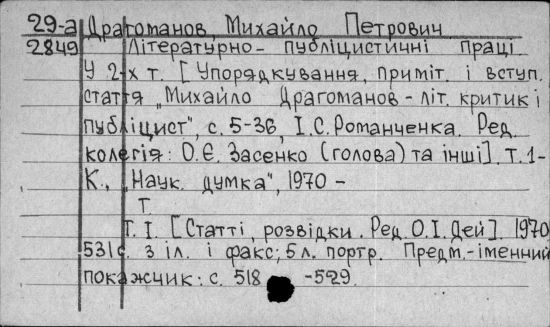 29-а Драгоманов, Михайло Петрович
2849 Літературно - публіцистичні праці.
У 2-х т. [Упорядкування, приміт. і вступ.
стаття „Михайло Драгоманов - літ. критик і
публіцист", с. 5-36, І.С. Романченка. Ред.
колегія: О.Є. Засенко (голова) та інші]. Т. 1-
К., „Наук. думка", 1970 -
Т.
Т. І. [Статті, розвідки. Ред. О.І. Дей]. 1970
531 с. з іл. і факс; 5 л. портр. Предм.-іменний
покажчик: с. 518 -529.